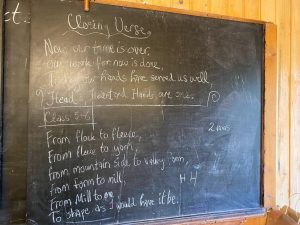 ct.
Closing Verse
Now our time is over,
Our work for now is done,
hands have served us well,
Head Heart and Hands are one.
Class 5-6
From flock to fleece,
From fleece to yarn,
From mountain side to valley
from farm to mill,
From Mill to me
To shape as I would have it be.
2
H H